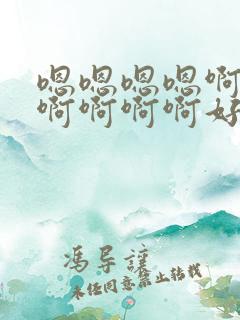 嗯嗯嗯嗯啊
啊啊啊啊好
冯导谨
未经同意禁止转载